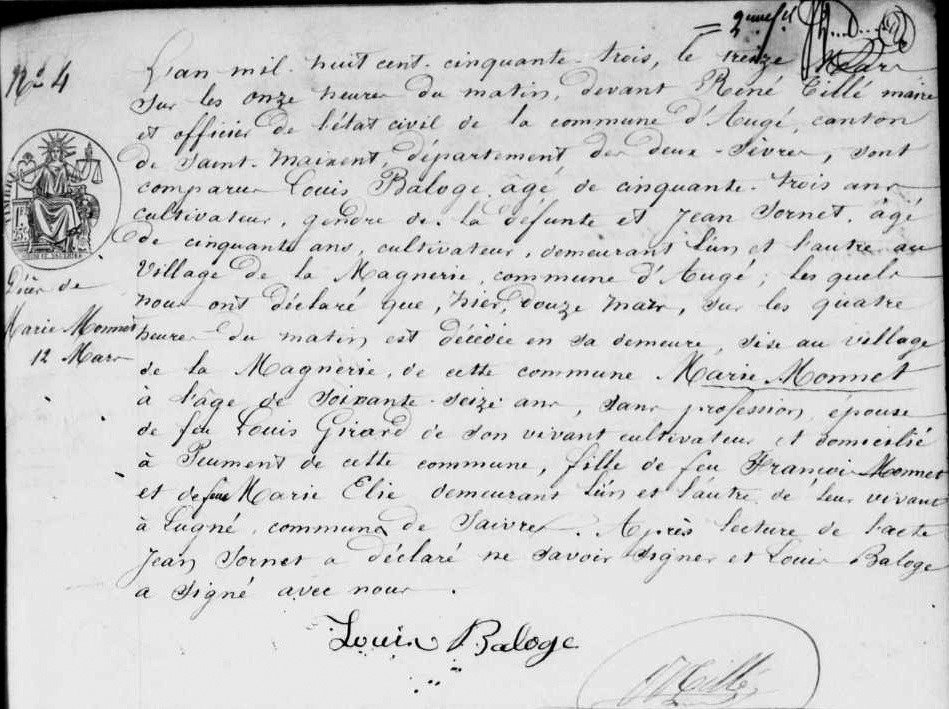 = 2
N° 4
L'an mil huit cent cinquante trois, le treize Mars
sur les onze heures du matin, devant Réné Tillé maire
et officier de l'état civil de la commune d'Augé, canton
de Saint-Maixent, département des deux-Sèvres, sont
comparus Louis Baloge, âgé de cinquante-trois ans
cultivateur, gendre de la défunte et Jean Sornet, âgé
de cinquante ans, cultivateur, demeurant l'un et l'autre au
Village de la Magnerie, commune d'Augé ; les quels
nous ont déclaré que, hier, douze mars, sur les quatre
heures du matin est décédée en sa demeure, sise au village
de la Magnerie, de cette commune Marie Monnet
à l'âge de soixante-seize ans, sans profession, épouse
de feu Louis Girard de son vivant cultivateur et domicilié
à Peument de cette commune, fille de feu François Monnet
et de feue Marie Elie demeurant l'un et l'autre de leur vivant
à Lugné, commune de Saivres. Après lecture de l'acte
Jean Sornet a déclaré ne savoir signer et Louis Baloge
a signé avec nous.
Décès de
Marie Monnet
12 Mars
Louis Baloge
Tillé